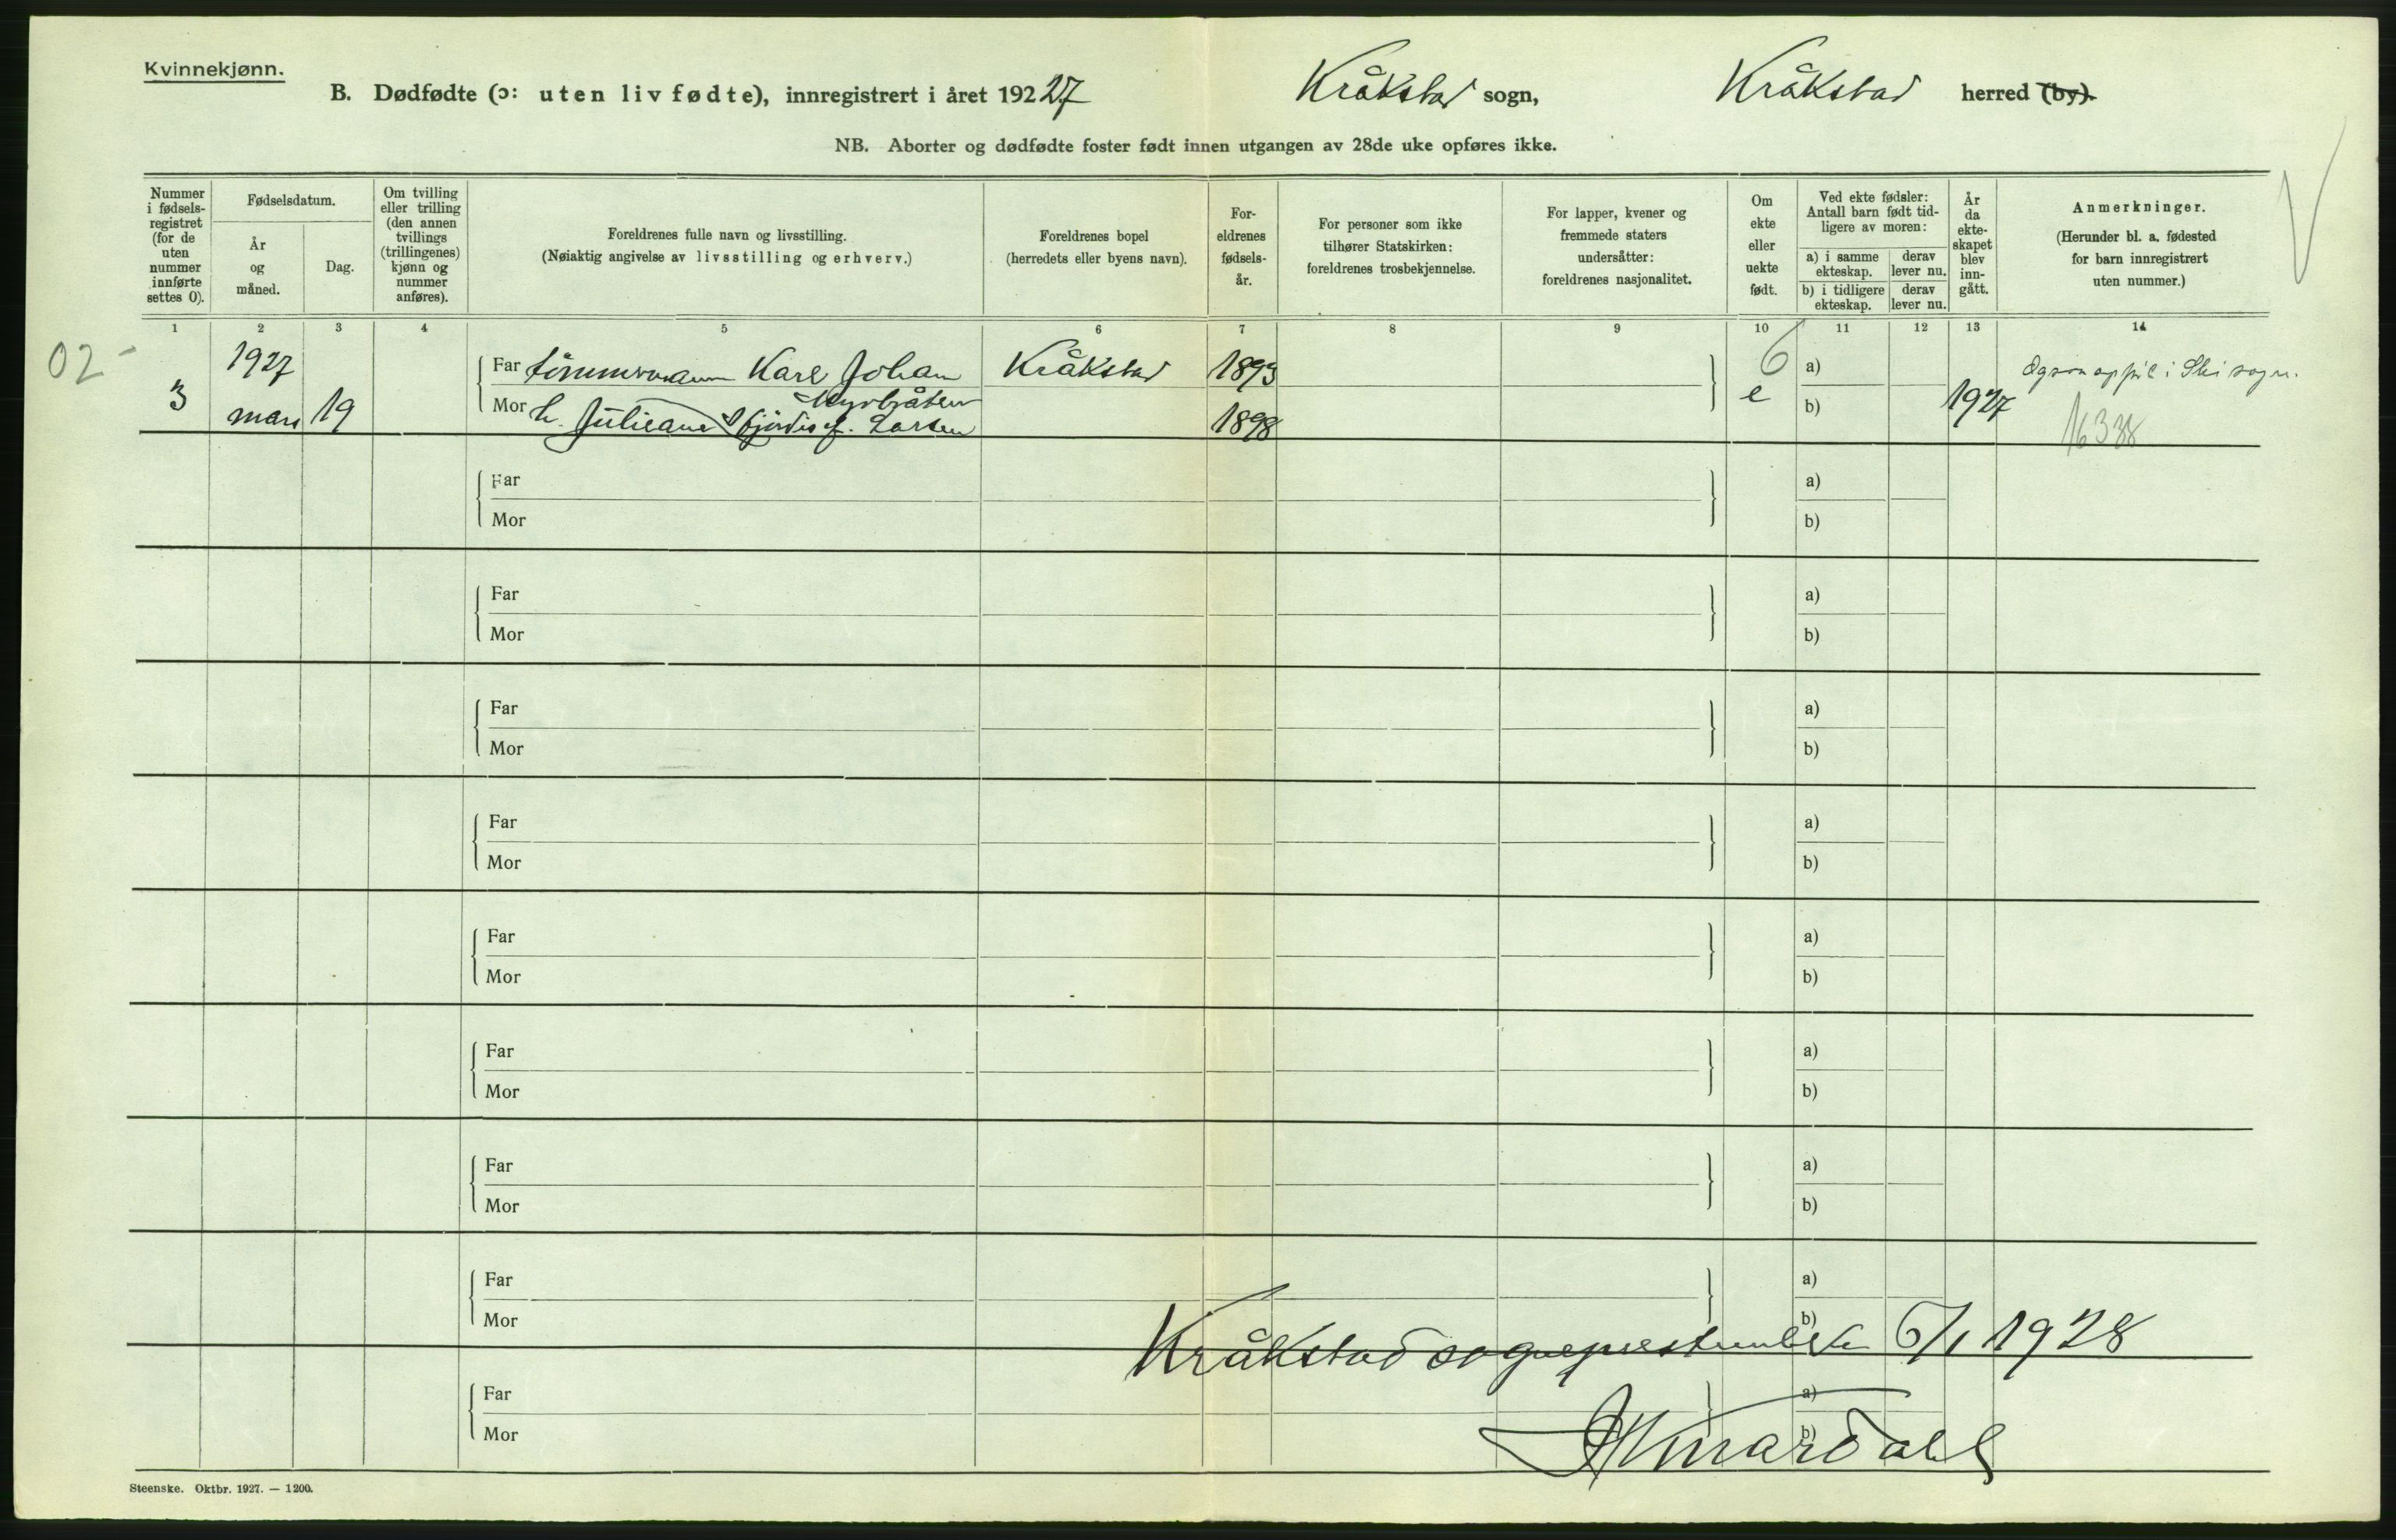 Kvinnekjønn.
B. Dødfødte (ɔ: uten liv fødte), innregistrert i året 192 27 Kråkstad sogn, Kråkstad herred (by).
NB. Aborter og dødfødte foster født innen utgangen av 28de uke opføres ikke.
Nummer i fødsels-registret (for de uten nummer innførte settes 0).
Fødselsdatum.
År og måned.
Dag.
Om tvilling eller trilling (den annen tvillings (trillingenes) kjønn og nummer anføres).
Foreldrenes fulle navn og livsstilling.
(Nøiaktig angivelse av livsstilling og erhverv.)
Foreldrenes bopel
(herredets eller byens navn).
For-eldrenes fødsels-år.
For personer som ikke tilhører Statskirken: foreldrenes trosbekjennelse.
For lapper, kvener og fremmede staters undersåtter: foreldrenes nasjonalitet.
Om ekte eller uekte født.
Ved ekte fødsler: Antall barn født tid-ligere av moren:
a) i samme ekteskap. derav lever nu.
b) i tidligere ekteskap. derav lever nu.
År da ekte-skapet blev inn-gått.
Anmerkninger.
(Herunder bl. a. fødested for barn innregistrert uten nummer.)
1 2 3 4 5 6 7 8 9 10 11 12 13 14
02-
3 1927 mars 19
Far tømmermann Karl Johan Kråkstad 1893 6 a)
Myrbråten
Mor h. Juliane Hjørdis f. Larsen 1898 e b) 1927
i Ski sogn.
16338
Far a)
Mor b)
Far a)
Mor b)
Far a)
Mor b)
Far a)
Mor b)
Far a)
Mor b)
Far a)
Mor b)
Far a)
Mor b)
Far a)
Mor b)
Kråkstad sogneprestembede 6/1 1928
Far a)
Mor b)
Steenske. Oktbr. 1927. — 1200.